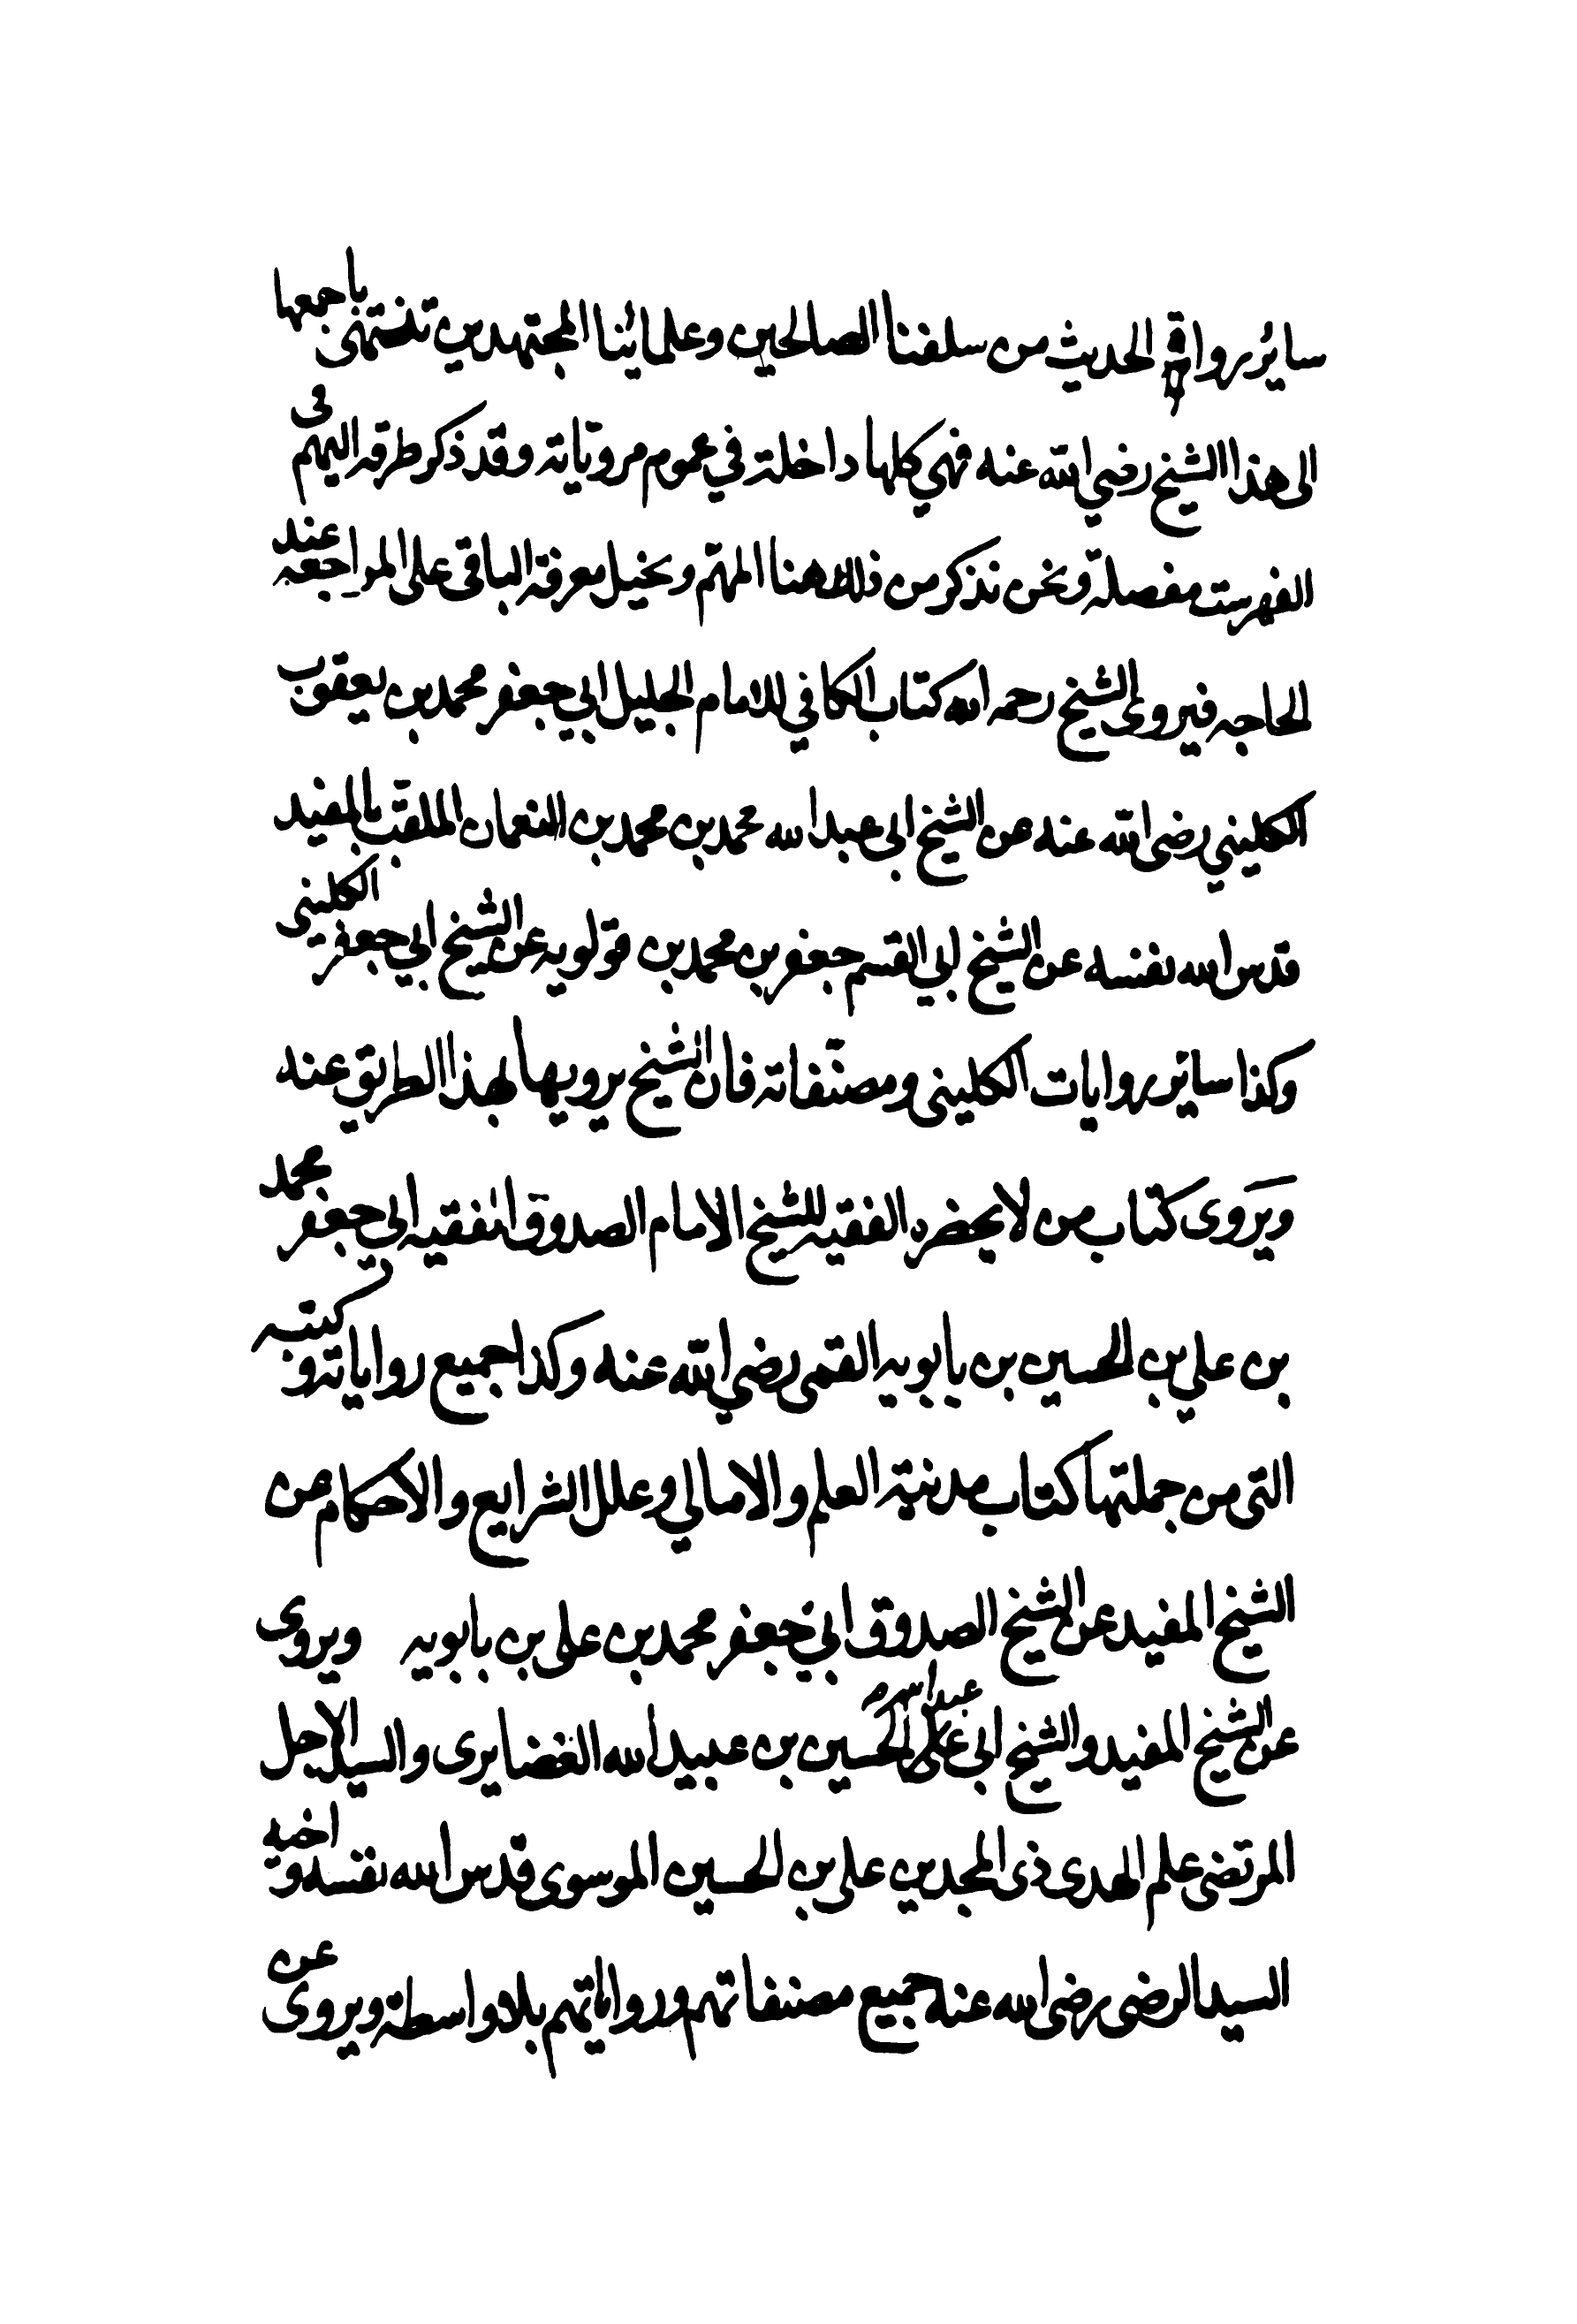 سائر رواة الحديث من سلفنا الصالحين وعلمائنا المجتهدين تنتهي باجمعها
الى هذا الشيخ رضي الله عنه فهي كلها داخلة في عموم مروياته وقد ذكر طرقه اليهم في
الفهرست مفصلة ونحن نذكر من ذلك هنا المهم ونحيل معرفة الباقي على المراجعه عند
الحاجه فيروى الشيخ رحمه الله كتاب الكافي للامام الجليل ابي جعفر محمد بن يعقوب
الكليني رضى الله عنه عن الشيخ ابي عبد الله محمد بن محمد بن النعمان الملقب بالمفيد
قدس الله نفسه عن الشيخ ابي القسم جعفر بن محمد بن قولويه عن الشيخ ابي جعفر الكليني
وكذا ساير روايات الكليني ومصنفاته فان الشيخ يرويها بهذا الطريق عنه
ويروى كتاب من لا يحضره الفقيه للشيخ الامام الصدوق الفقيه ابي جعفر محمد
بن علي بن الحسين بن بابويه القمى رضي الله عنه وكذا جميع رواياته وكتبه
التى من جملتها كتاب مدينة العلم والامالي وعلل الشرايع والاحكام عن
الشيخ المفيد عن الشيخ الصدوق ابي جعفر محمد بن على بن بابويه ويروى
عن الشيخ المفيد والشيخ ابي عبد الله الحسين بن عبيد الله الغضايرى والسيد الاجل
المرتضى علم الهدى ذى المجدين علي بن الحسين الموسوى قدس الله نفسه واخيه
السيد الرضى رضى الله عنه جميع مصنفاتهم ورواياتهم بلا واسطة ويروى عن